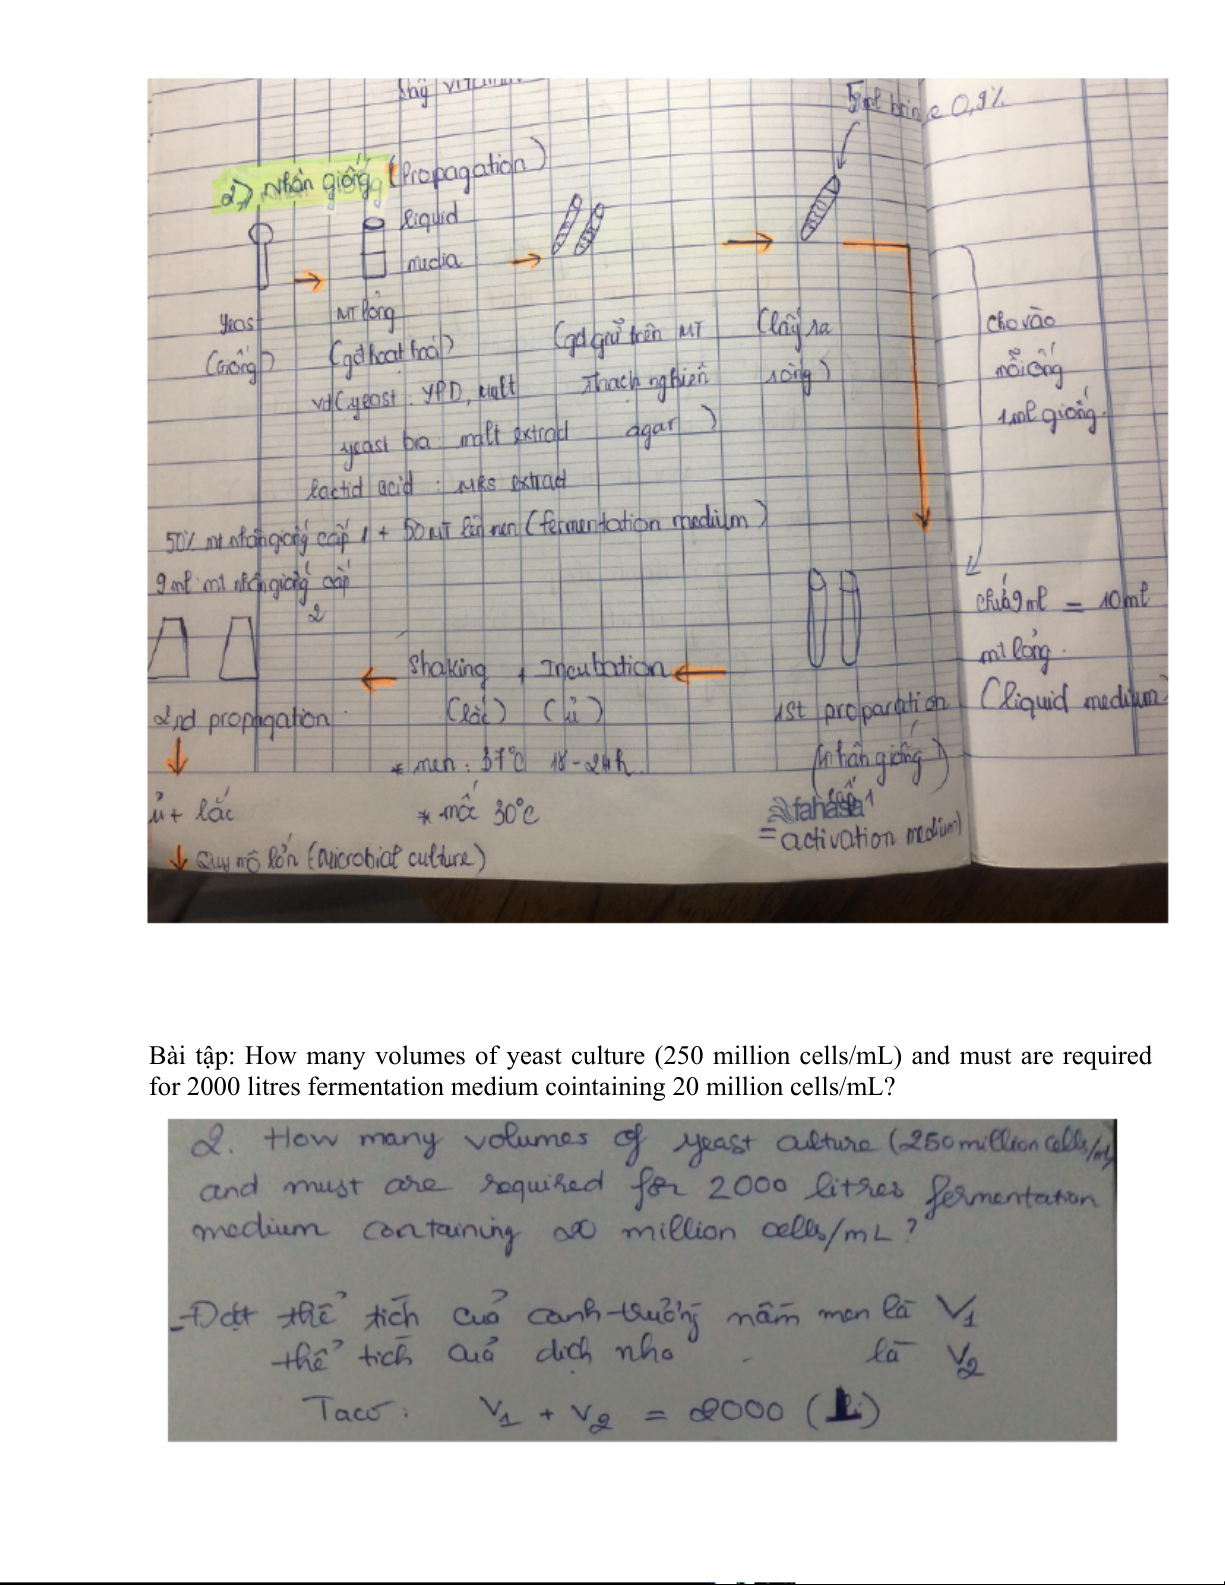 5ml brine 0,9%
2) Nhân giống (Propagation)
liquid
media
Yeast
(Giống)
MT lỏng
(gđ hoạt hoá)
vd (yeast: YPD, malt
yeast bia: malt extrad
lactid acid: MRS extrad
(gđ giữ trên MT
thạch nghiên
agar)
(lấy ra
ròng)
Cho vào
mỗi ống
1ml giống.
50% mt nhân giống cấp 1 + 50 MT lên men (fermentation medium)
9ml mt nhân giống cấp
2
chứa 9ml = 10ml
mt lỏng.
(liquid medium)
Shaking, Incubation
(lắc) (ủ)
2nd propagation.
1st proparation
(nhân giống
lần 1
= activation medium)
* men: 37°C 18-24h.
* mốc 30°C
fahasa
ủ + lắc
Quy mô lớn (microbial culture)
Bài tập: How many volumes of yeast culture (250 million cells/mL) and must are required
for 2000 litres fermentation medium cointaining 20 million cells/mL?
2. How many volumes of yeast culture (250 million cells/mL)
and must are required for 2000 litres fermentation
medium containing 20 million cells/mL?
- Đặt thể tích của canh trường nấm men là V1
thể tích của dịch nho là V2
Ta có: V1 + V2 = 2000 (L)